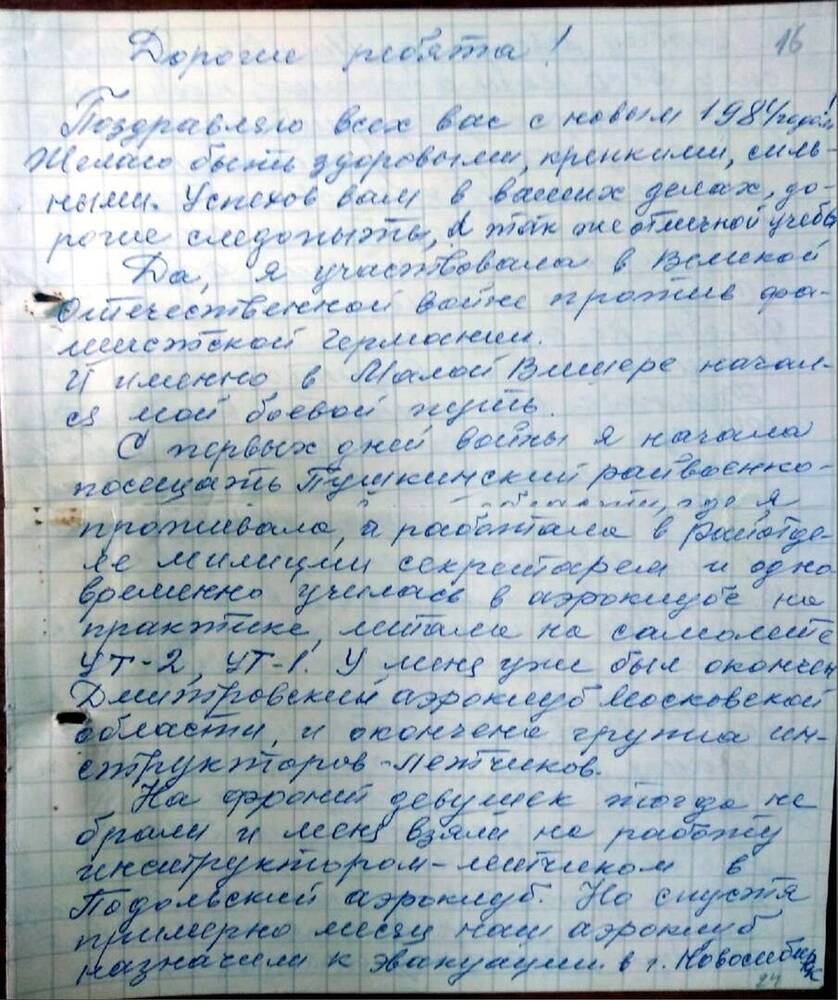 16
Дорогие ребята!
Поздравляю всех вас с новым 1984 годом!
Желаю быть здоровыми, крепкими, силь-
ными. Успехов вам в ваших делах, до-
рогие следопыты, а так же отличной учебы
Да, я участвовала в Великой
Отечественной войне против фа-
шистской Германии.
И именно в Малой Вишере начал-
ся мой боевой путь.
С первых дней войны я начала
посещать Пушкинский райвоенко-
области, где я
проживала, а работала в райотде-
ле милиции секретарем и одно
временно училась в аэроклубе на
практике, летала на самолете
УТ-2, УТ-1. У меня уже был окончен
Дмитровский аэроклуб Московской
области, и окончена группа ин-
структоров-летчиков.
На фронт девушек тогда не
брали и меня взяли на работу
инструктором-летчиком в
Подольский аэроклуб. Но спустя
примерно месяц наш аэроклуб
назначили к эвакуации в г. Новосибирск
24